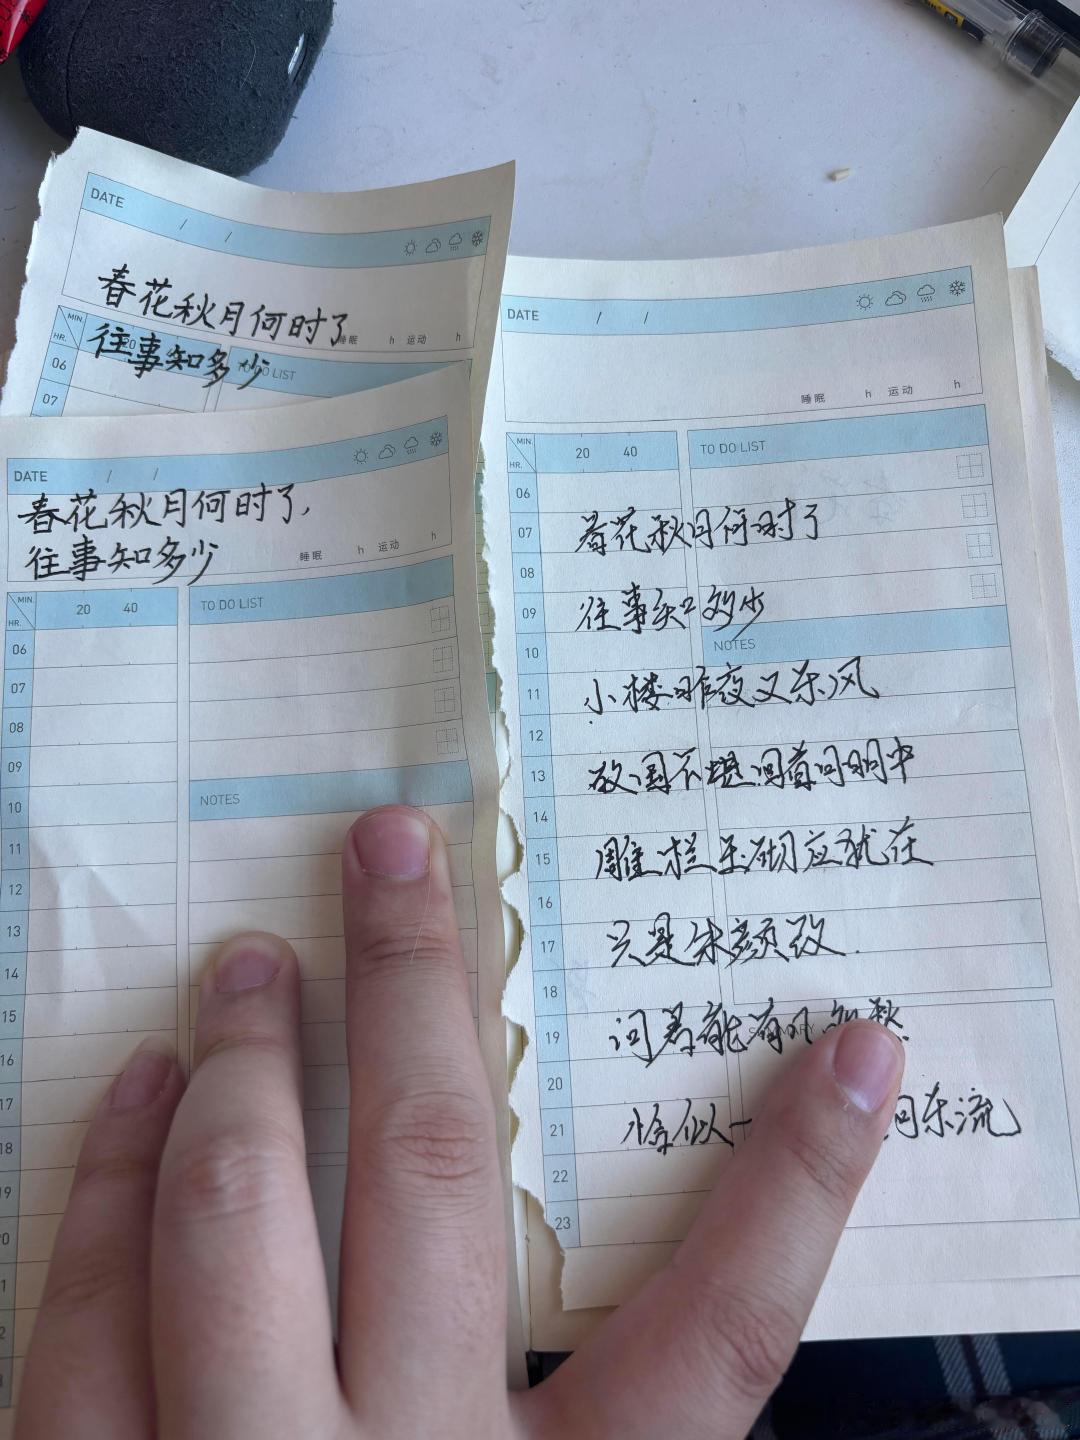 DATE / /
春花秋月何时了
睡眠 h 运动 h
往事知多少
MIN.
HR.
20
TO DO LIST
06
07
DATE / /
春花秋月何时了,
往事知多少
睡眠 h 运动 h
MIN.
HR.
20 40
TO DO LIST
06
07
08
09
10
NOTES
11
12
13
14
15
16
17
18
19
DATE / /
睡眠 h 运动 h
MIN.
HR.
20 40
TO DO LIST
06
07
春花秋月何时了
08
09
往事知多少
10
NOTES
11
小楼昨夜又东风
12
13
故国不堪回首月明中
14
15
雕栏玉砌应犹在
16
17
只是朱颜改.
18
19
问君能有几多愁
20
21
恰似一
向东流
22
23